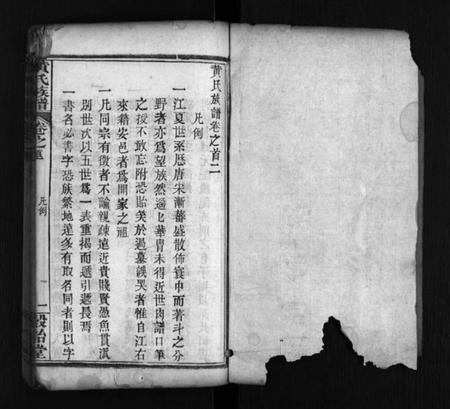 黃氏族譜卷之首二
凡例
一江夏世系歷唐宋漸蕃盛散佈寰中而著斗之分
野者亦為望族然過上華胄未得近世肉譜口筆
之援不敢忘附恐貽笑於過墓誤哭者惟自江右
來籍安邑者為開家之祖
一凡同宗有徵者不論親疎遠近貴賤賢愚魚貫派
別世次以五世為一表重揭而遞引遞長焉
一書名必書字恐族繁地遠多有取名同者則以字
黃氏族譜 卷之首 凡例 一 堂